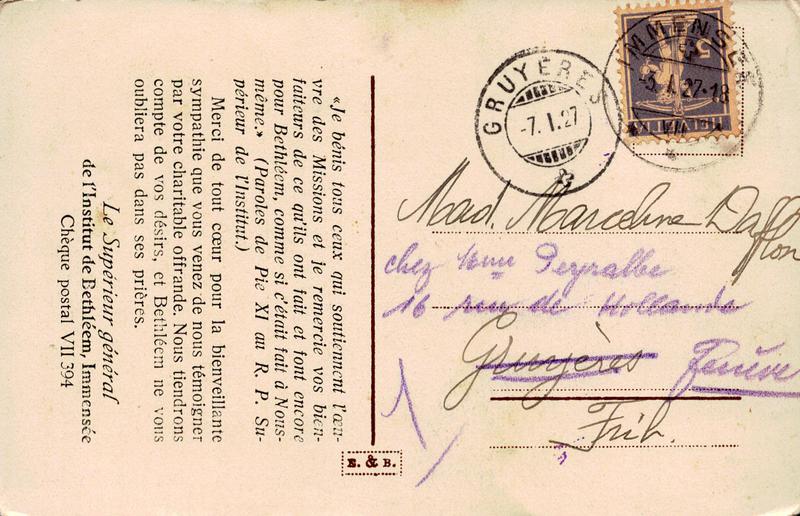 «Je bénis tous ceux qui soutiennent l'œu-
vre des Missions et je remercie vos bien-
faiteurs de ce qu'ils ont fait et font encore
pour Bethléem, comme si c'était fait à Nous-
même.» (Paroles de Pie XI au R. P. Su-
périeur de l'Institut.)
Merci de tout cœur pour la bienveillante
sympathie que vous venez de nous témoigner
par votre charitable offrande. Nous tiendrons
compte de vos désirs, et Bethléem ne vous
oubliera pas dans ses prières.
Le Supérieur général
de l'Institut de Bethléem, Immensée
Chèque postal VII 394
E. & B.
GRUYÈRES
-7.I.27
IMMENSEE
-3.I.27-18
5
Mad. Marceline Dafflon
chez Mme Peyralbe
16 rue de Hollande
Gruyères Genève
Frib.